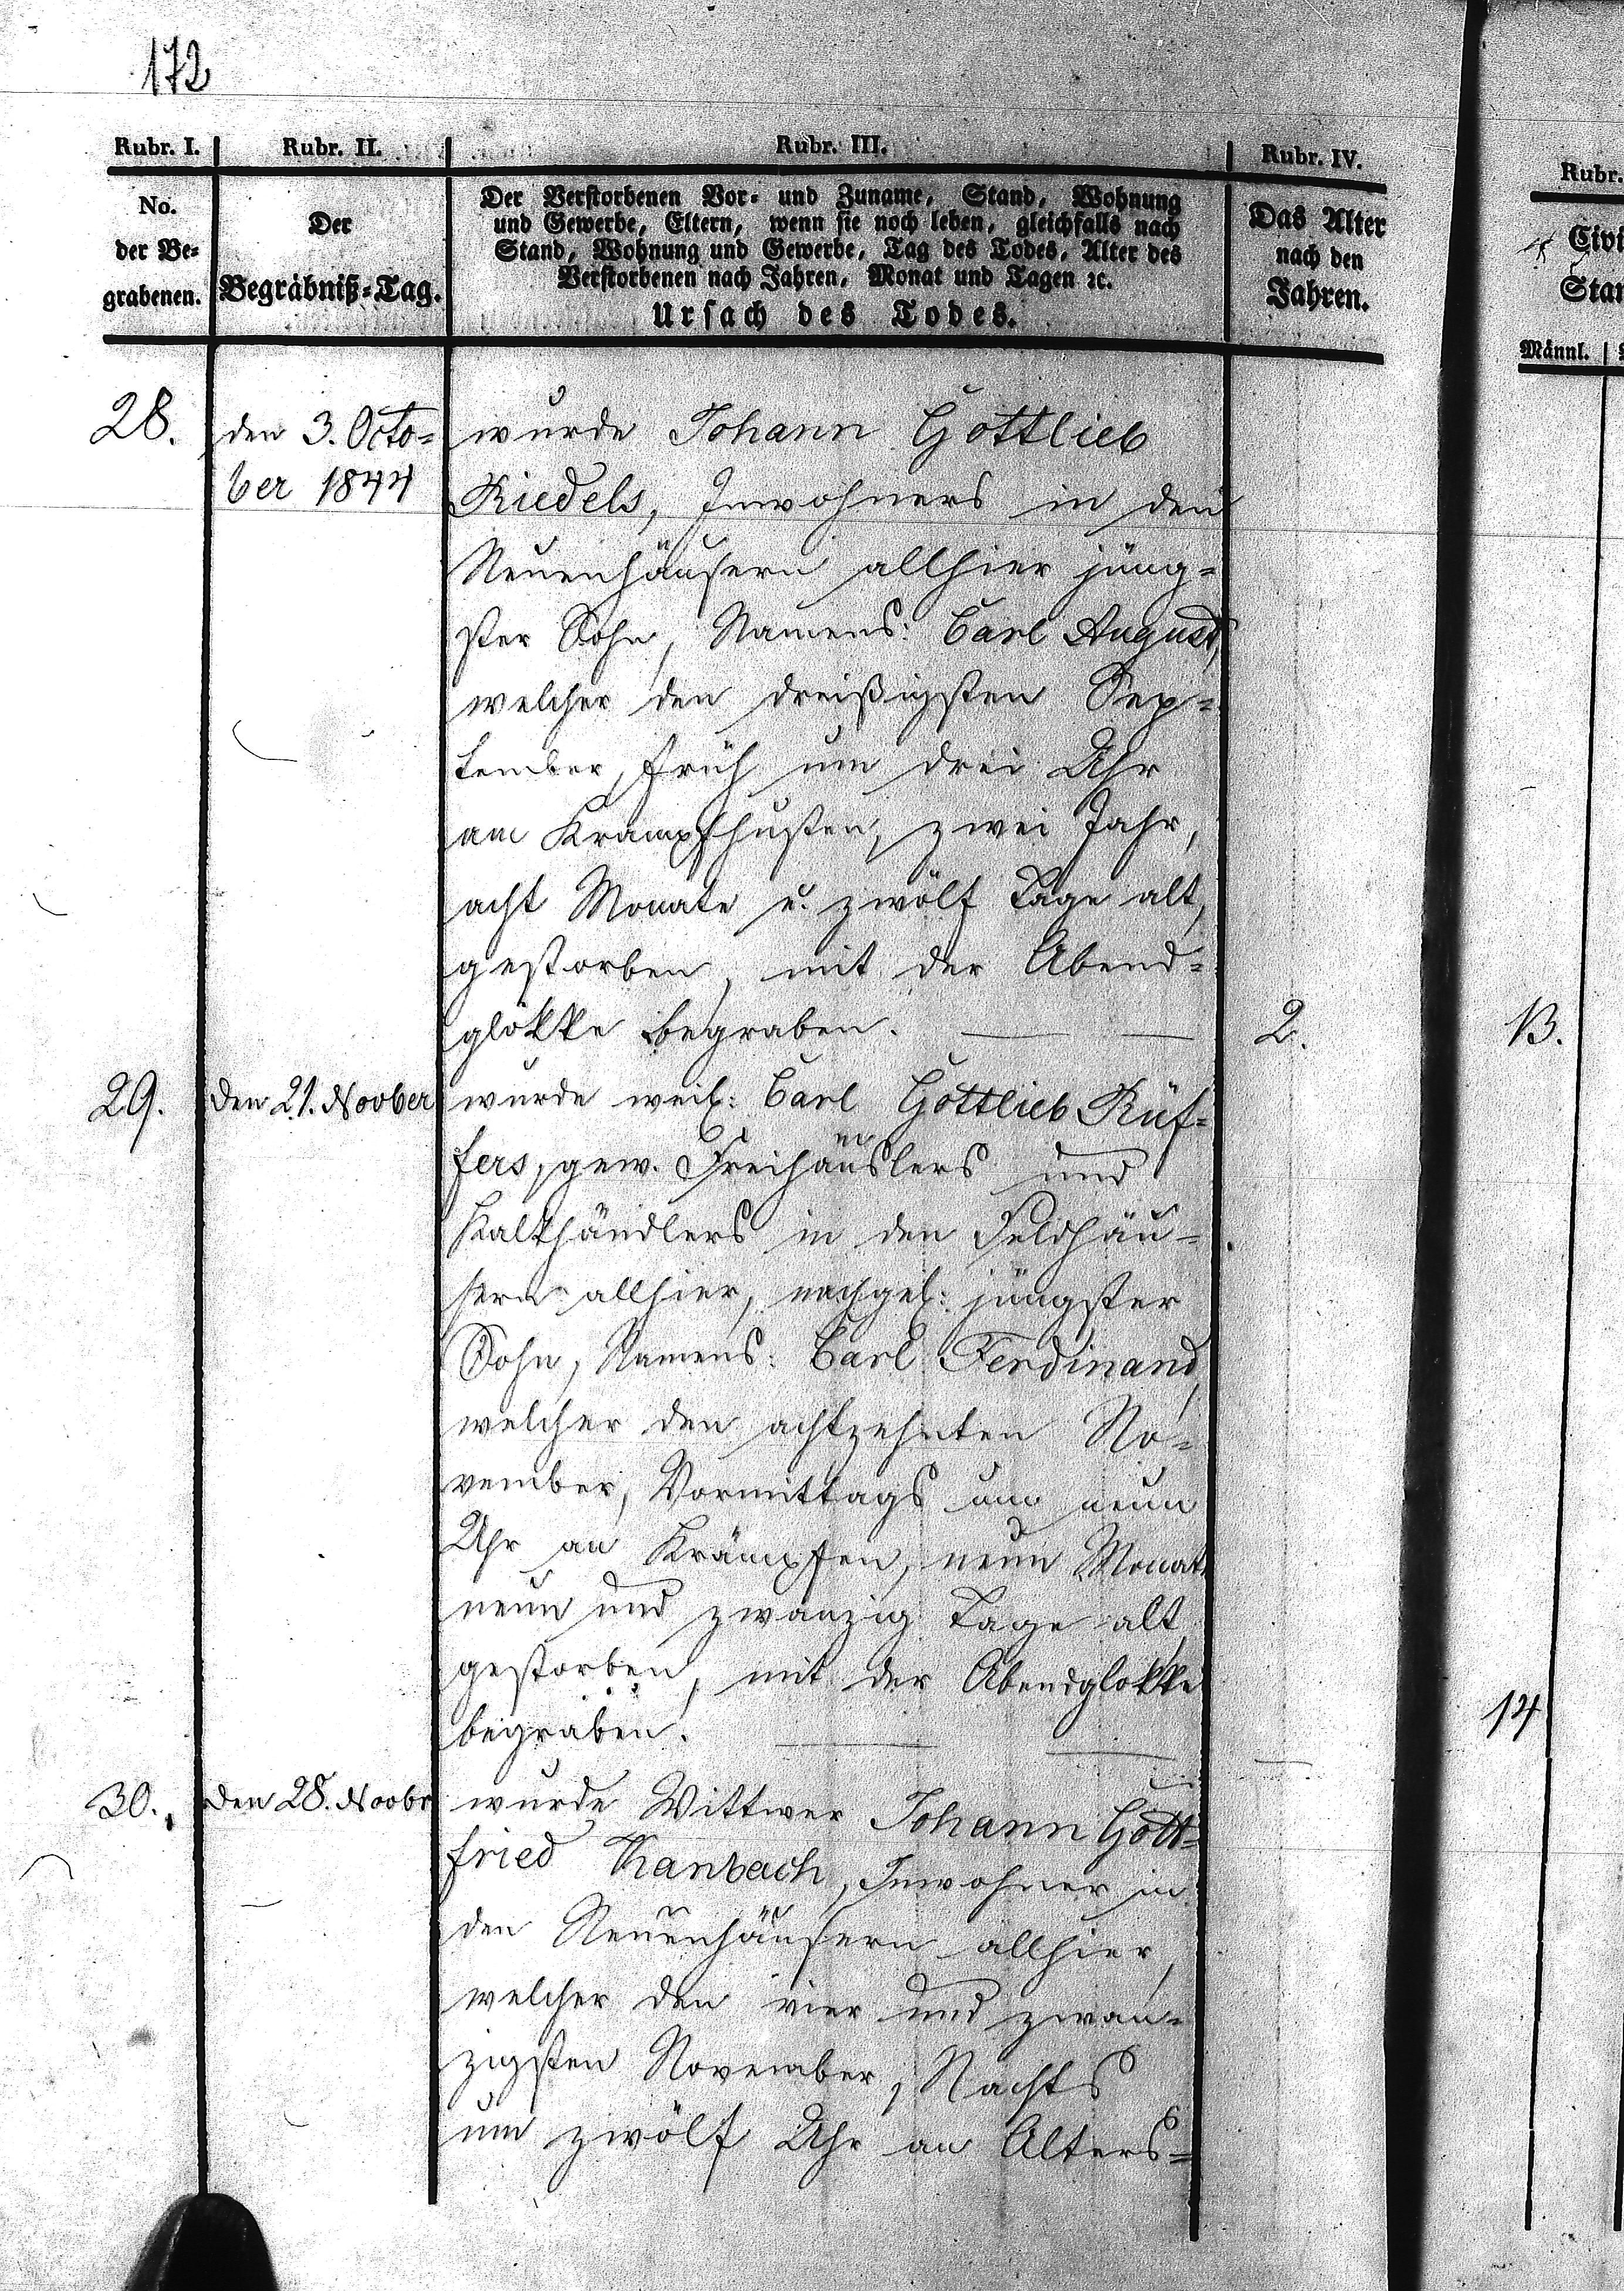 172
Rubr. I. Rubr. II. Rubr. III. Rubr. IV. Rubr.
No.
der Be-
grabenen.
Der
Begräbniß-Tag.
Der Verstorbenen Vor- und Zuname, Stand, Wohnung
und Gewerbe, Eltern, wenn sie noch leben, gleichfalls nach
Stand, Wohnung und Gewerbe, Tag des Todes, Alter des
Verstorbenen nach Jahren, Monat und Tagen ꝛc.
Ursach des Todes.
Das Alter
nach den
Jahren.
Männl.
28. den 3. Octo- wurde Johann Gottlieb
ber 1844 Riedels, Inwohners in den
Neuenhäusern allhier jüng-
ster Sohn, Namens: Carl August,
welcher den dreißigsten Sep-
tember, früh um drei Uhr
am Krampfhusten, zwei Jahr,
acht Monate u. zwölf Tage alt,
gestorben, mit der Abend-
glokke begraben. 2. 13.
29. den 21. Novber wurde weil: Carl Gottlieb Rüf-
fers, gew. Freihäuslers und
Kalkhändlers in den Feldhäu-
sern allhier, nachgel: jüngster
Sohn, Namens: Carl Ferdinand,
welcher den achtzehnten No-
vember, Vormittags um neun
Uhr an Krämpfen, neun Monate
neun und zwanzig Tage alt,
gestorben, mit der Abendglokke
begraben. 14
30. den 28. Novbr wurde Wittwer Johann Gott-
fried Kanbach, Inwohner in
den Neuenhäusern allhier,
welcher den vier und zwan-
zigsten November, Nachts
um zwölf Uhr an Alters-